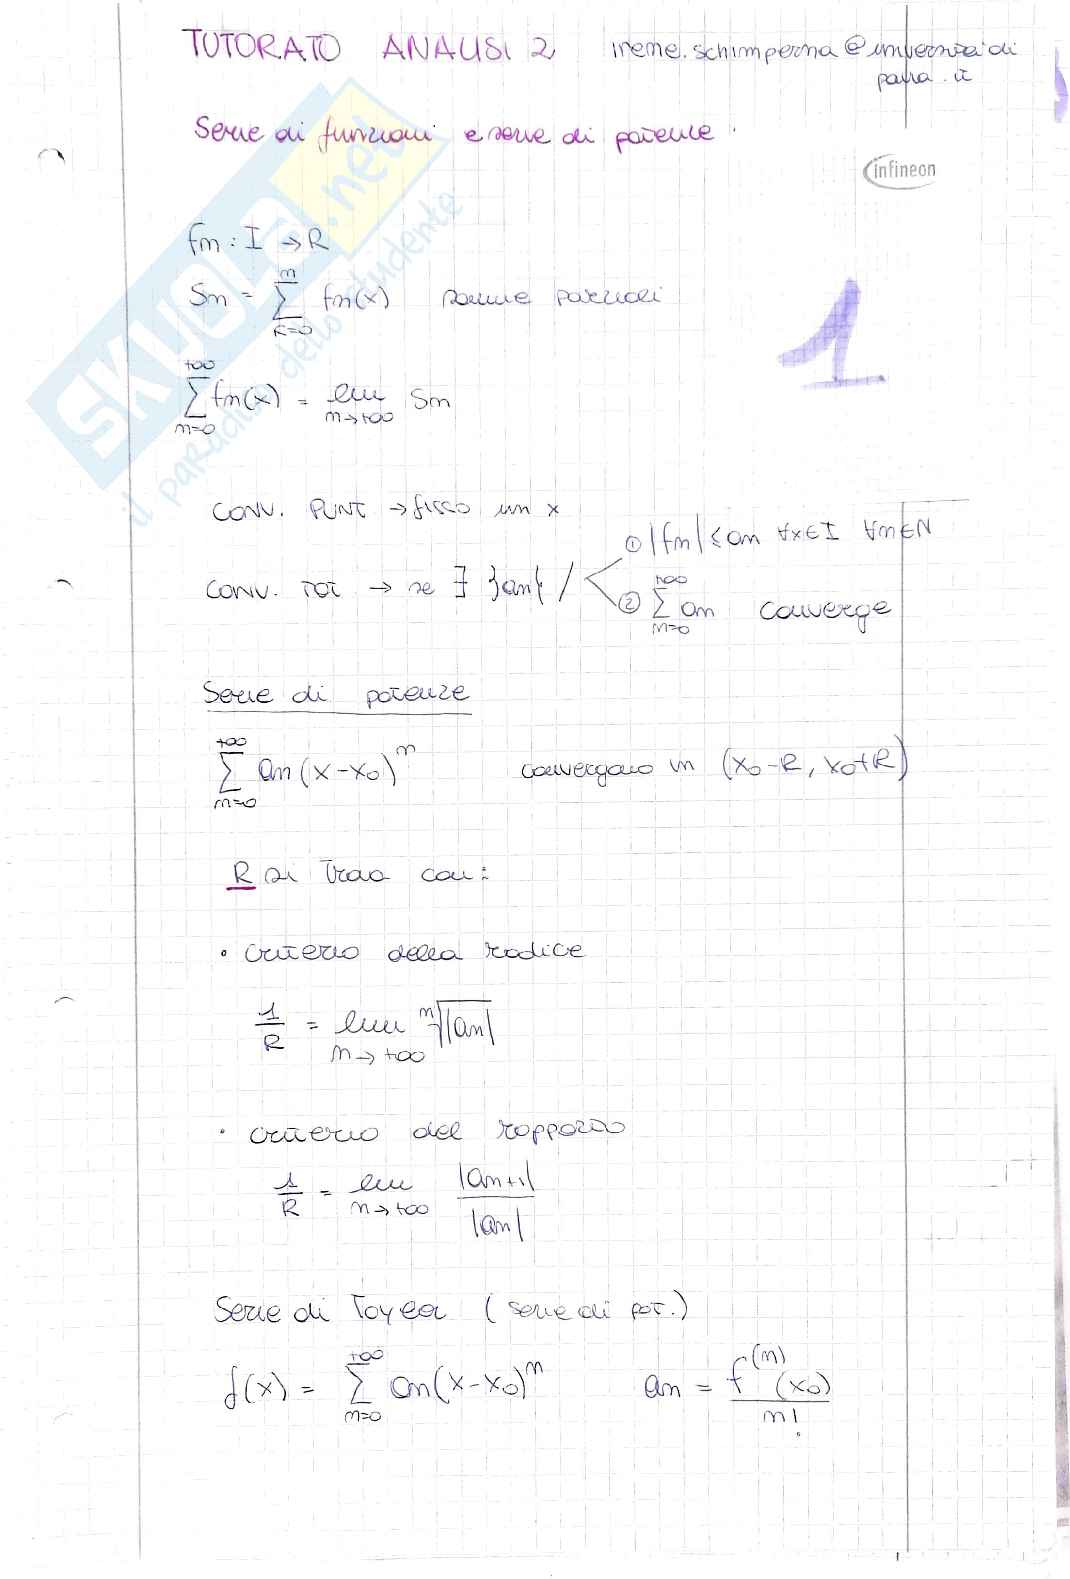 TUTORATO ANALISI 2 irene.schimperna@universitadi
pavia.it
Serie di funzioni e serie di potenze
infineon
SKUOLA.net
il paradiso dello studente
1
fn : I → R
Sn = Σ_{k=0}^{n} fn(x) somme parziali
Σ_{n=0}^{+∞} fn(x) = lim_{n→+∞} Sn
CONV. PUNT → fisso un x
CONV. TOT → se ∃ {an} / ① |fn| ≤ an ∀x∈I ∀n∈N
② Σ_{n=0}^{+∞} an converge
Serie di potenze
Σ_{n=0}^{+∞} an(x-x0)^n convergono in (x0-R, x0+R)
R si trova con:
• criterio della radice
1/R = lim_{n→+∞} ⁿ√|an|
• criterio del rapporto
1/R = lim_{n→+∞} |an+1|/|an|
Serie di Taylor (serie di pot.)
f(x) = Σ_{n=0}^{+∞} an(x-x0)^n an = f^(n)(x0)/n!